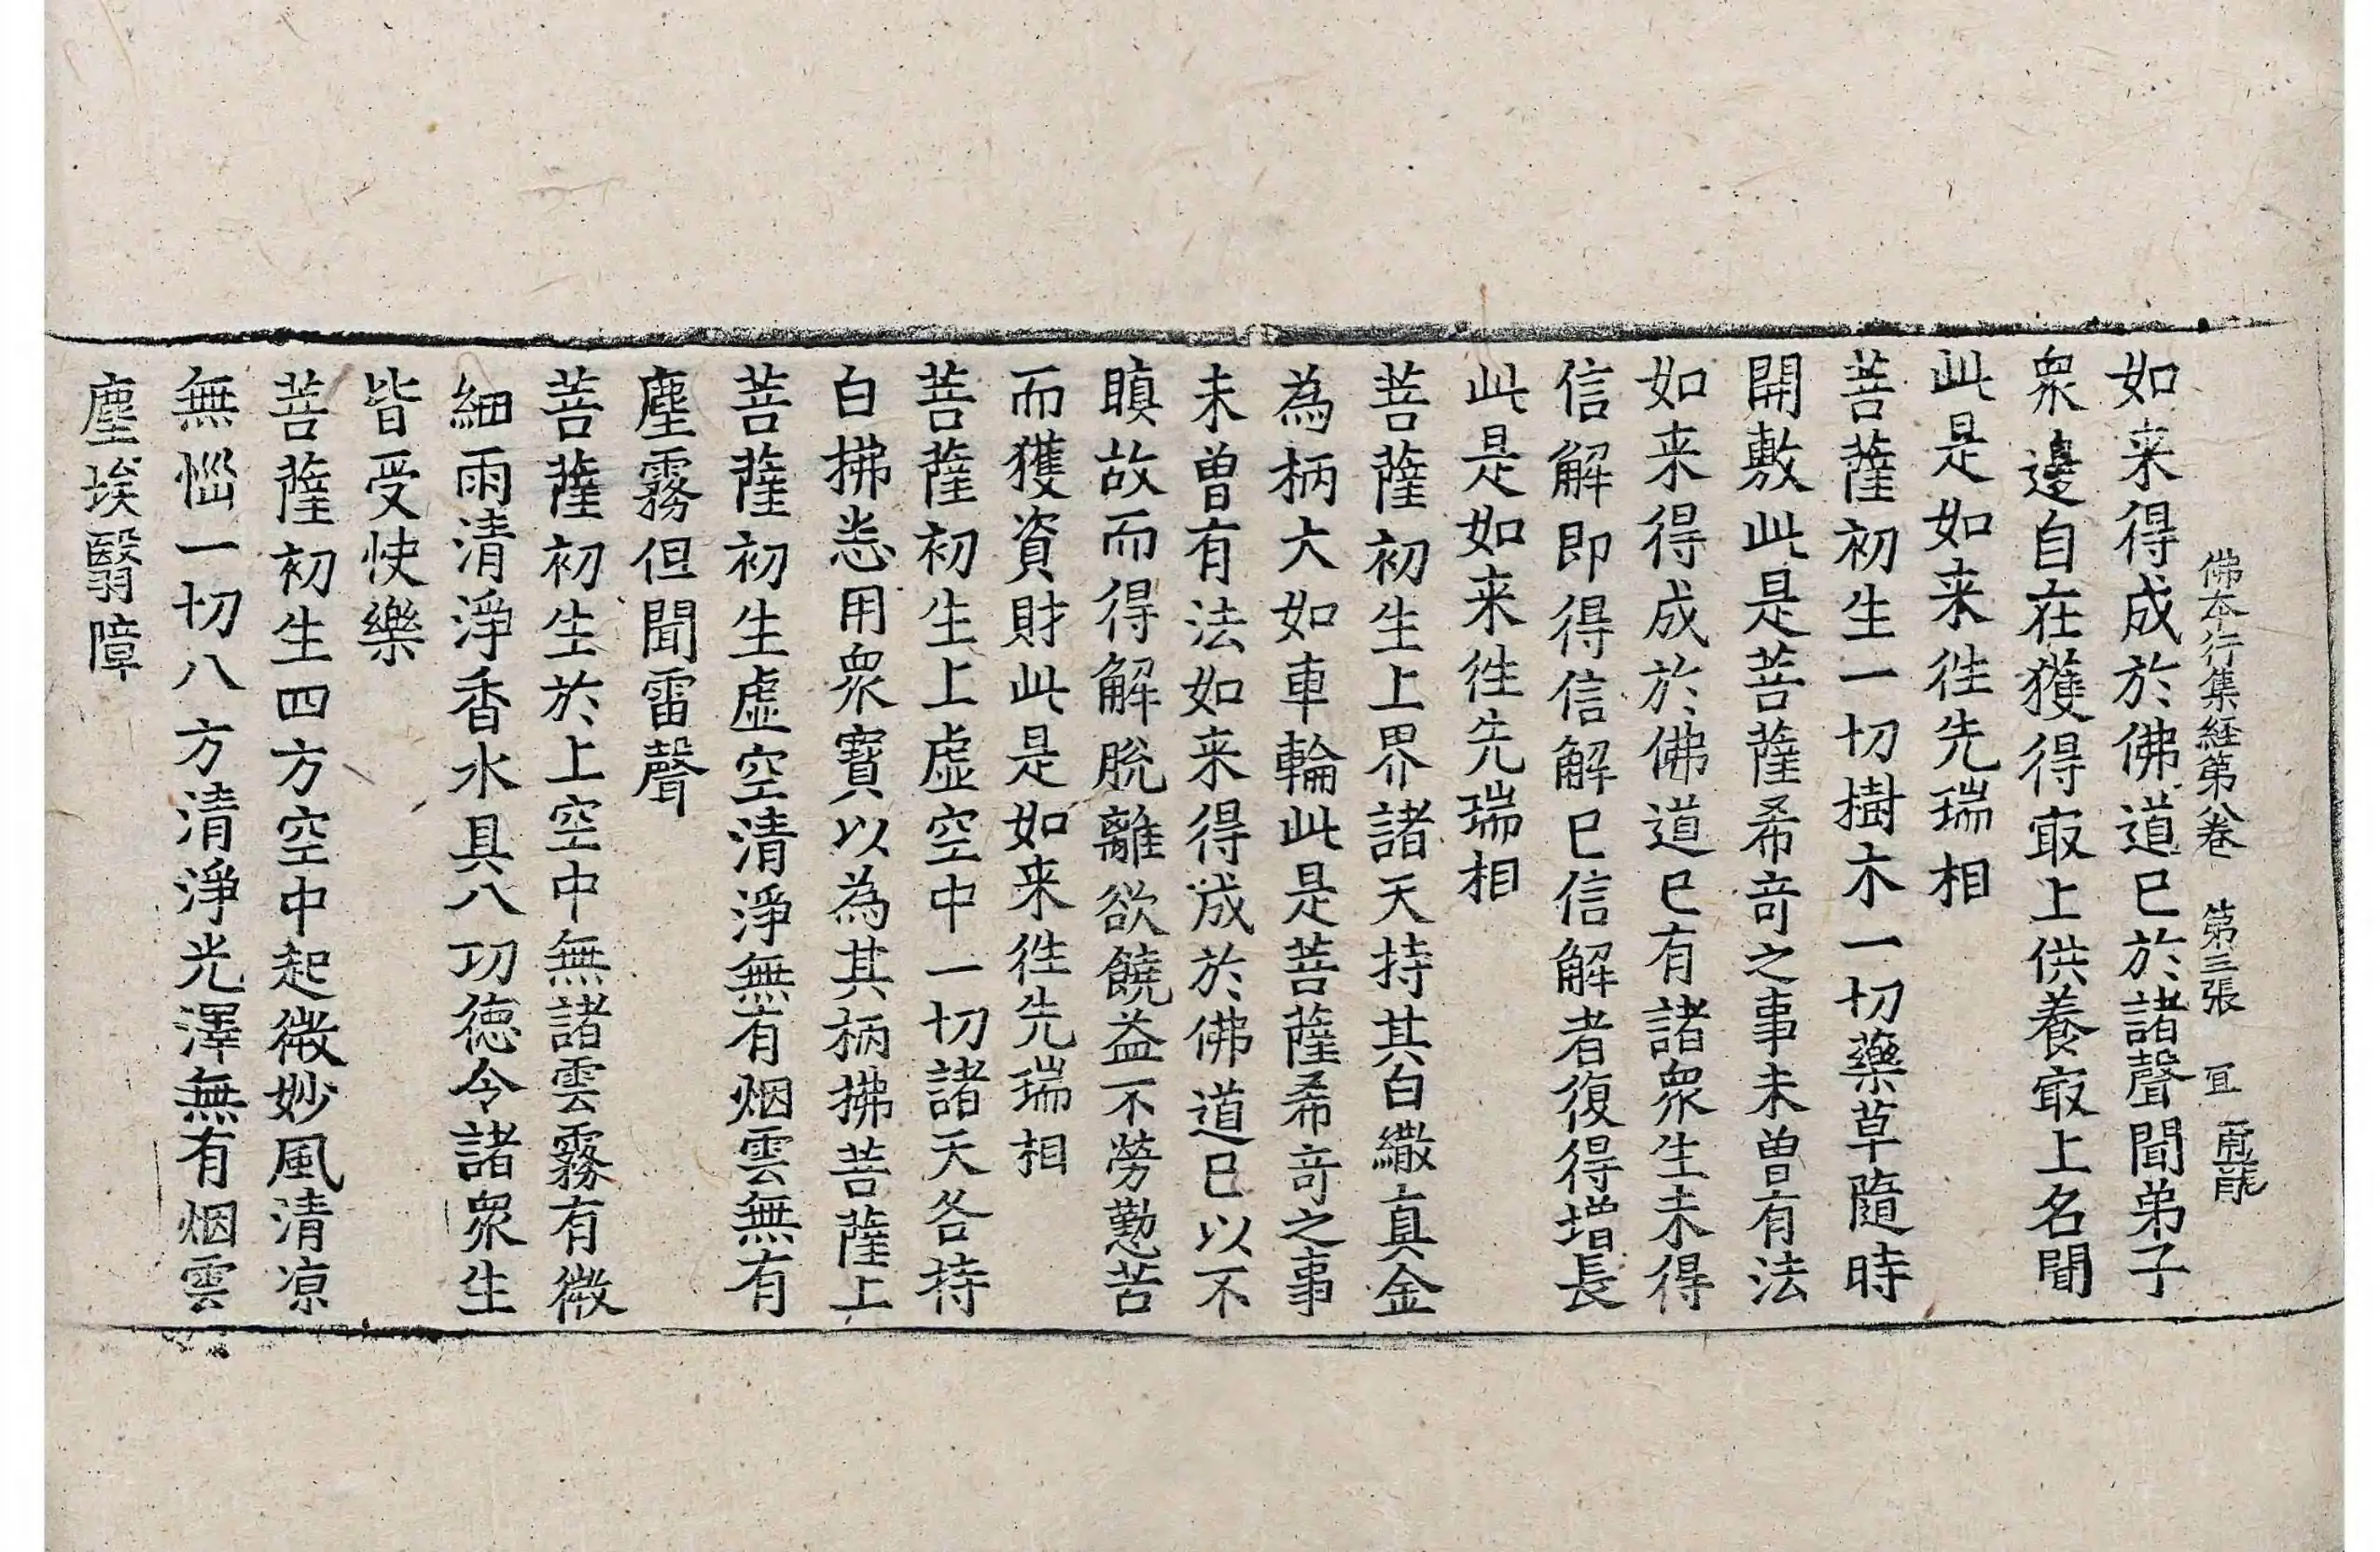 佛本行集経第八卷　第三張　冝
如来得成於佛道已於諸聲聞弟子
衆邊自在獲得㝡上供養㝡上名聞
此是如来徃先瑞相
菩薩初生一切樹木一切藥草隨時
開敷此是菩薩希竒之事未曽有法
如来得成於佛道已有諸衆生未得
信解即得信解已信解者復得增長
此是如来徃先瑞相
菩薩初生上界諸天持其白繖真金
為柄大如車輪此是菩薩希竒之事
未曽有法如来得成於佛道已以不
瞋故而得解脫離欲饒益不勞懃苦
而獲資財此是如来徃先瑞相
菩薩初生上虛空中一切諸天各持
白拂悉用衆寳以為其柄拂菩薩上
菩薩初生虛空清淨無有烟雲無有
塵霧但聞雷聲
菩薩初生於上空中無諸雲霧有微
細雨清淨香水具八功德令諸衆生
皆受快樂
菩薩初生四方空中起微妙風清凉
無惱一切八方清淨光澤無有烟雲
塵埃翳障